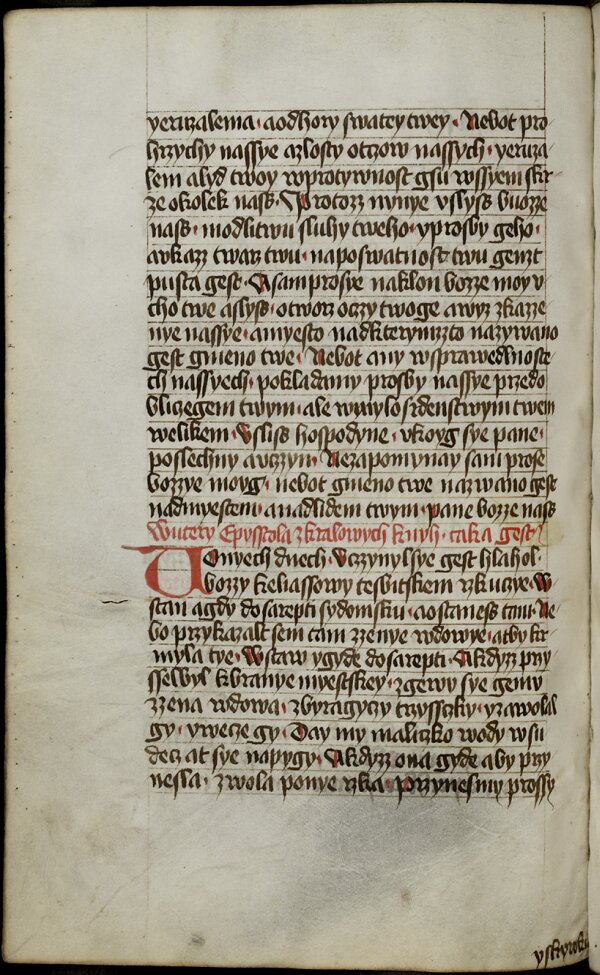 yeruzalema · aodhory swatey twey · Nebot pro
hrzychy nassye azlosty otczow nassych · yeruza
lem alyd twoy wprotywnost gsu wssyem skr
ze okolek nass · Protozz nynye uslyss buozze
nass · modlitwu sluhy tweho · yprosby geho ·
aukazz twarz twu · naposwatnost twu genzt
pusta gest · A sam prosye naklon bozze moy v
cho twe aslyss · otworz oczy twoge awyz zkazze
nye nassye · amyesto nadkterymzto nazywano
gest gmeno twe · Nebot any wsprawedlnoste
ch nassyech · pokladamy prosby nassye przedo
bliczegem twym · ale wmylosrdenstwym twem
welikem · Usliss hospodyne · ukoyg sye pane ·
poslechny auczyn · Nezapomynay sam prose
bozzye moyg · nebot gmeno twe nazwano gest
nadmyestem · anadlidem twym · pane bozze nass
Wutery Epysstola zkralowych knyh · taka gest
Wonyech dnech · Uczynyl sye gest hlahol ·
bozzy keliassowy tesbitskem rzkuczye · W
stan agdy dosarepti sydomsku · aostaness tam · Ne
bo przykazalt sem tam zzenye wdowye · atby kr
myla tye · Wstaw ygyde dosarepti · Akdyz przy
sselbyl kbranye myestskey · zgewy sye gemu
zzena wdowa · zbyragyczy trzyssczky · yzawolal
gy · ywecze gy · Day my maliczko wody wsu
decz at sye napygy · Akdyzz ona gyde aby przy
nesla · zwola ponye rzka · Przynesmy prossy